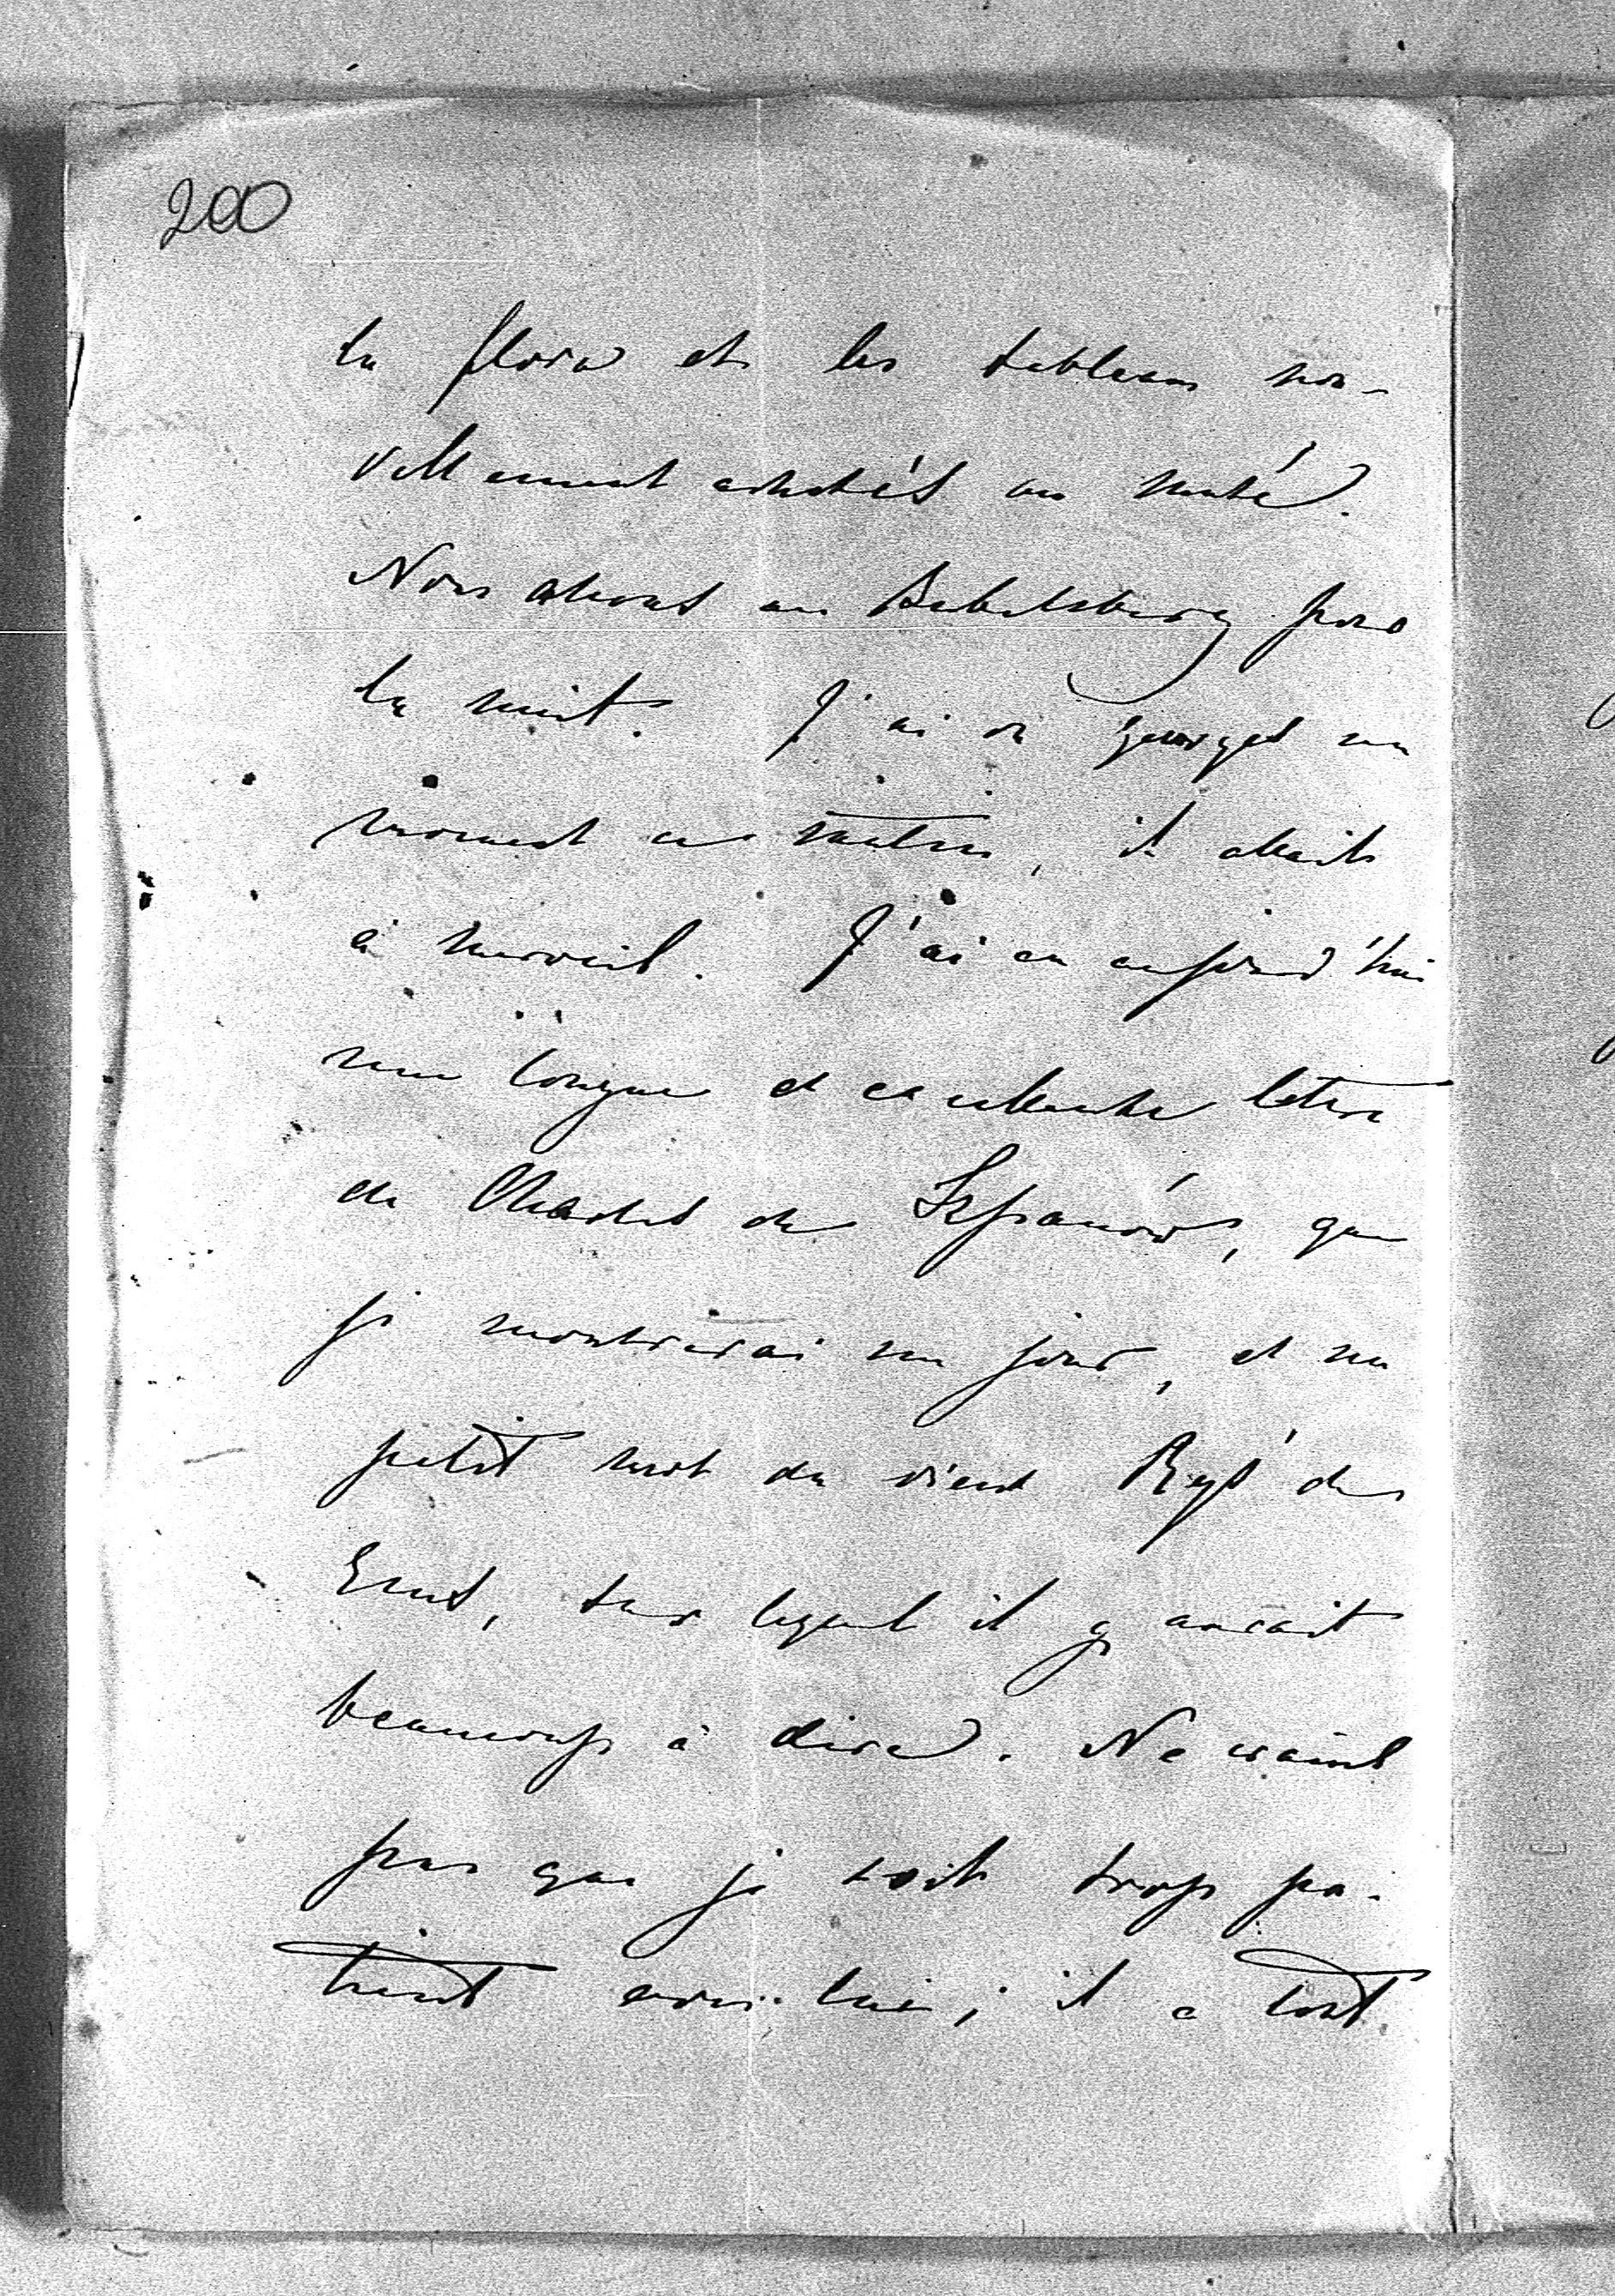 200
la flora et les tableaus nou-
vellement achetés au musée.
Nous allons au Babelsberg pour
la nuit. J'ai vu Georges un
moment ce matin, il allait
à merveil. J'ai eu aujourd'hui
une longue et excellente lettre
de de Szpanów, que
je montrerai un jour, et un
petit mot du vieux de
Ems, sur lequel il y aurait
beaucoup à dire. Ne crains
pas que je soit trop pa-
tient avec lui; il a tout